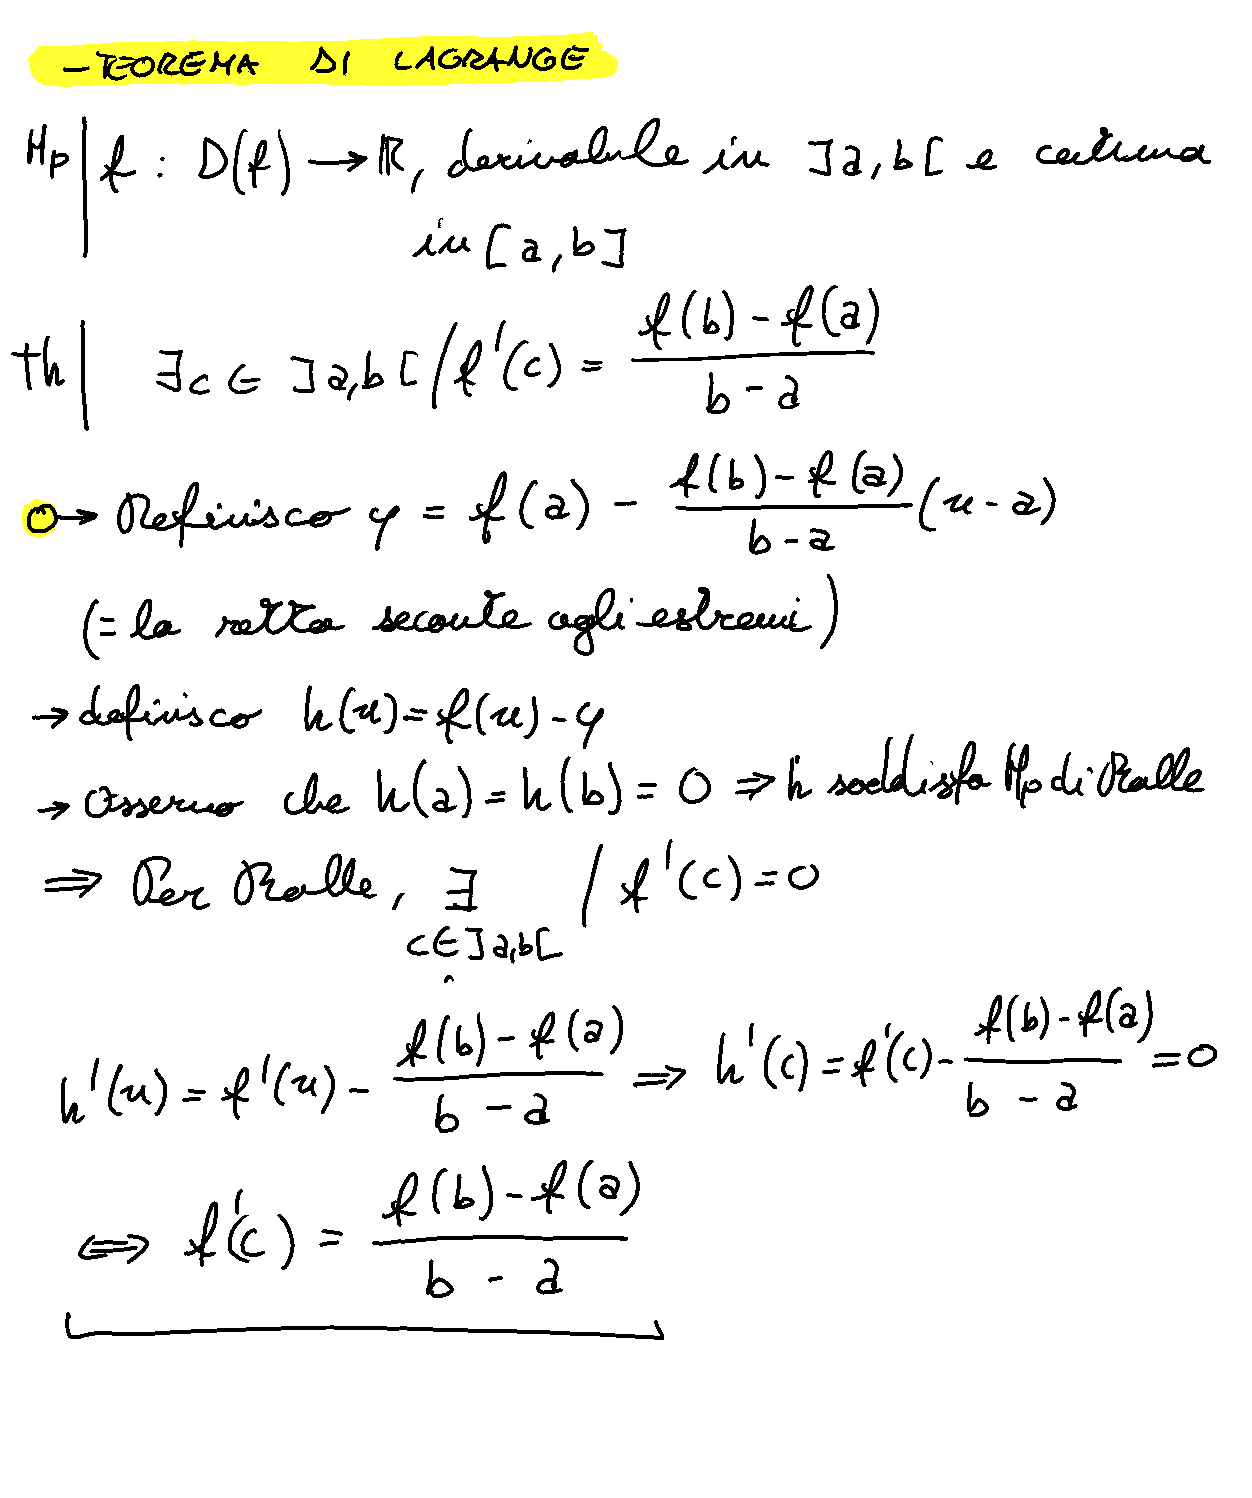 - TEOREMA DI LAGRANGE
Hp | f : D(f) → ℝ, derivabile in ]a,b[ e continua
in [a,b]
th | ∃c ∈ ]a,b[ / f'(c) = (f(b) - f(a)) / (b - a)
→ Definisco y = f(a) - (f(b) - f(a)) / (b - a) (x - a)
(= la retta secante agli estremi)
→ definisco h(x) = f(x) - y
→ Osservo che h(a) = h(b) = 0 ⇒ h soddisfa Hp di Rolle
⇒ Per Rolle, ∃ / f'(c) = 0
c ∈ ]a,b[
h'(x) = f'(x) - (f(b) - f(a)) / (b - a) ⇒ h'(c) = f'(c) - (f(b) - f(a)) / (b - a) = 0
⟺ f'(c) = (f(b) - f(a)) / (b - a)